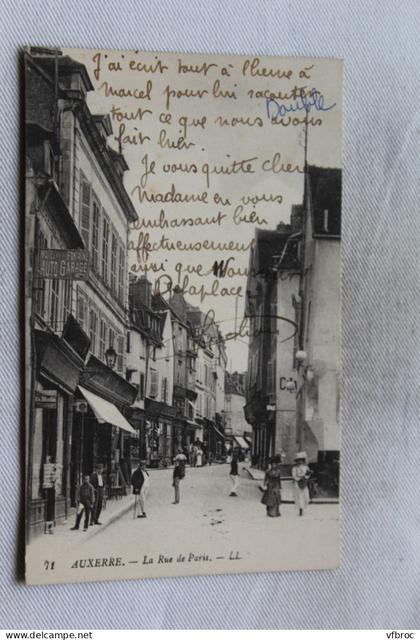 J'ai écrit tout à l'heure à
Marcel pour lui raconter
tout ce que nous avons
fait hier.
Double
Je vous quitte chère
Madame en vous
embrassant bien
affectueusement
ainsi que Monsieur
Delaplace
AUTO GARAGE
71 AUXERRE. — La Rue de Paris. — LL
© vfbroc
delcampe.net
vfbroc